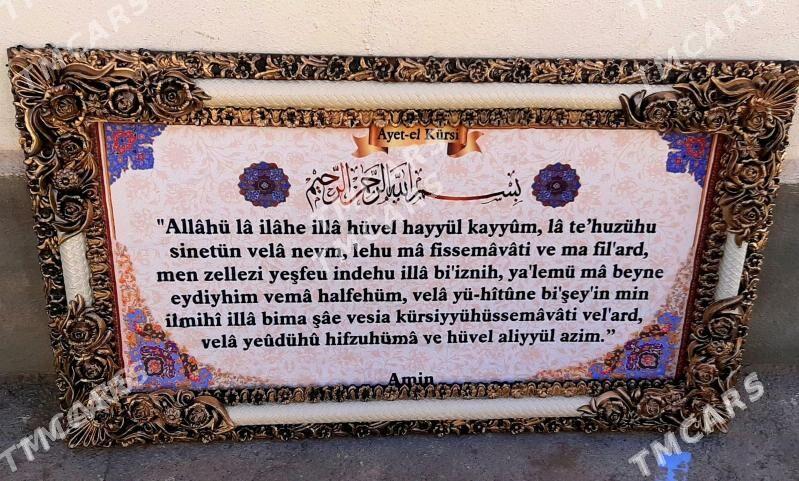 Ayet-el Kürsi
بسم الله الرحمن الرحيم
"Allâhü lâ ilâhe illâ hüvel hayyül kayyûm, lâ te'huzühu
sinetün velâ nevm, lehu mâ fissemâvâti ve ma fil'ard,
men zellezi yeşfeu indehu illâ bi'iznih, ya'lemü mâ beyne
eydiyhim vemâ halfehüm, velâ yü-hîtûne bi'şey'in min
ilmihî illâ bima şâe vesia kürsiyyühüssemâvâti vel'ard,
velâ yeûdühû hifzuhümâ ve hüvel aliyyül azim.”
Amin
TMCARS
TMCARS
TMCARS
TMCARS
TMCARS
TMCARS